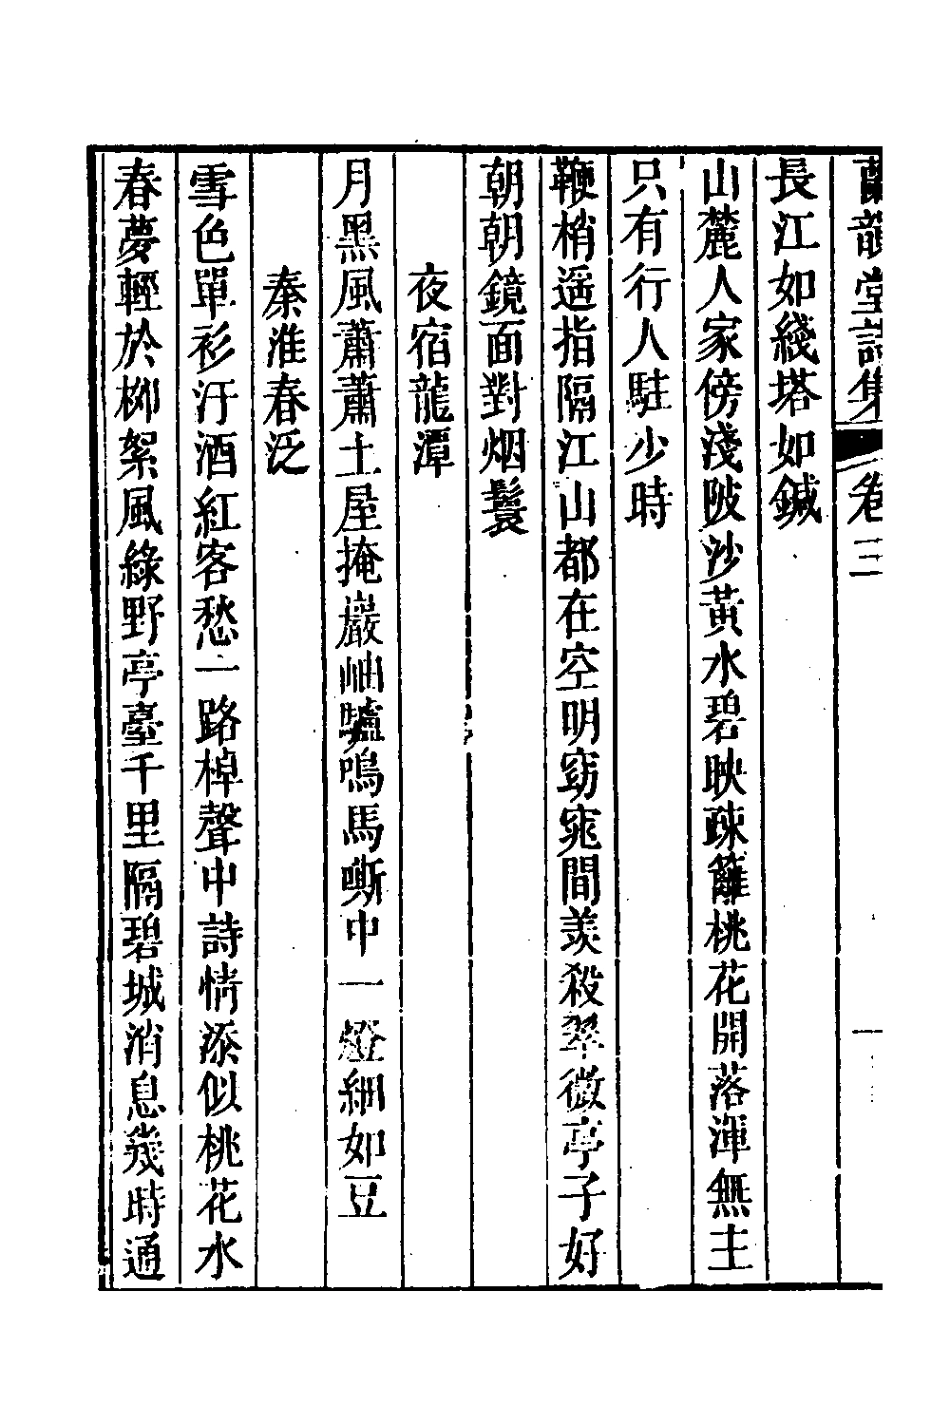 蘭韻堂詩集 卷三 一
長江如綫塔如鍼
山麓人家傍淺陂沙黃水碧映疎籬桃花開落渾無主
只有行人駐少時
鞭梢遥指隔江山都在空明窈窕間羨殺翠微亭子好
朝朝鏡面對烟鬟
夜宿龍潭
月黑風蕭蕭土屋掩巖岫驢鳴馬嘶中一燈細如豆
秦淮春泛
雪色單衫汙酒紅客愁一路棹聲中詩情添似桃花水
春夢輕於柳絮風綠野亭臺千里隔碧城消息幾時通